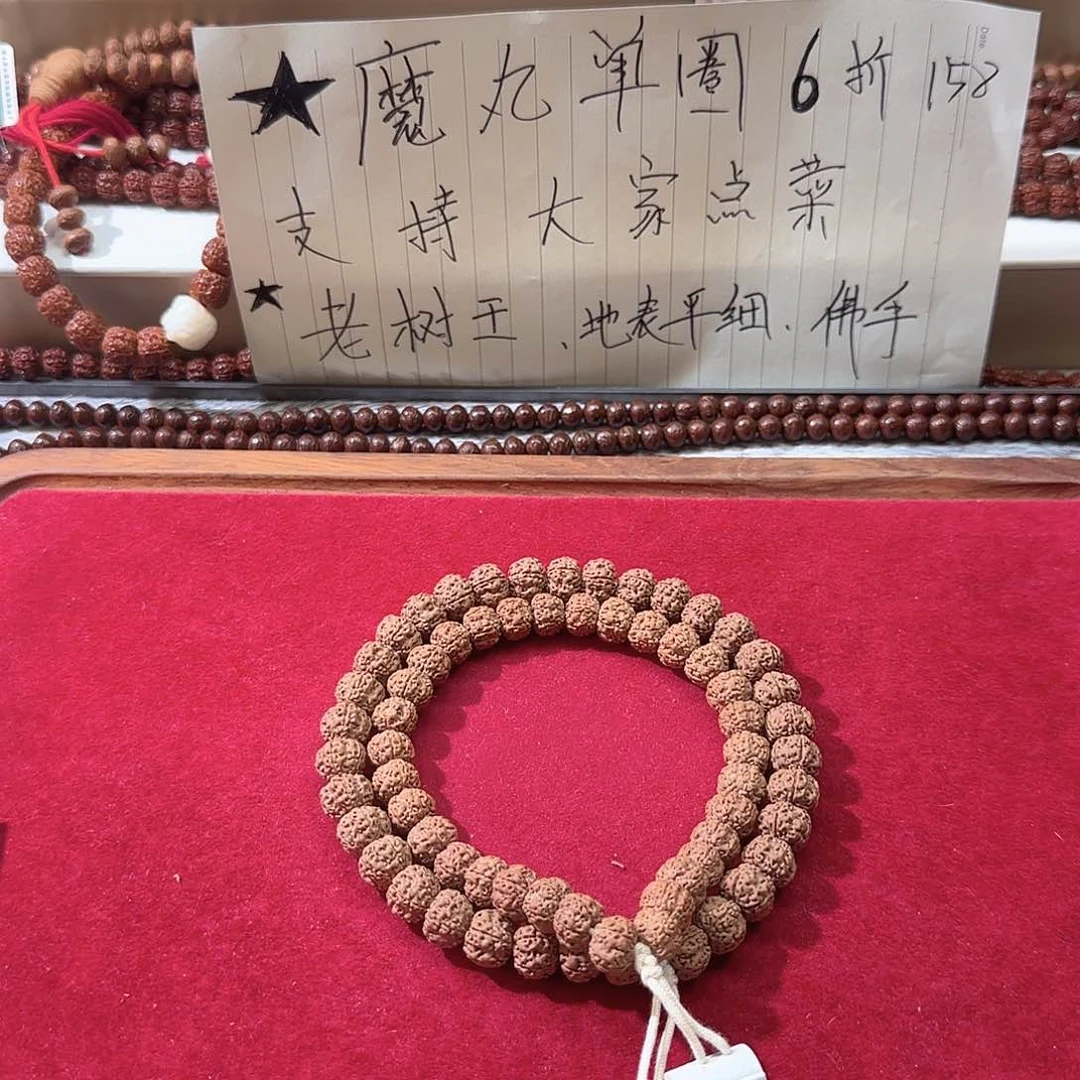 ★魔丸单圈6折 158
支持大家点菜
★老树王、地表平细、佛手